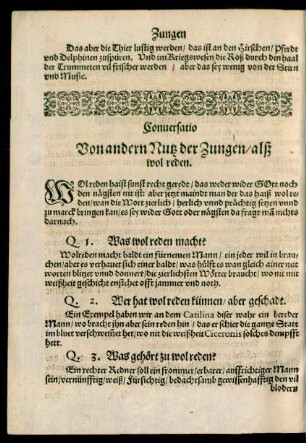 Zungen
Das aber die Thier lustig werden / das ist an den Hirschen / Pferde
vnd Delphinen zuspüren. Vnd im Kriegswesen die Roß durch den haal
der Trummeten vil frischer werden / aber das sey wenig von der Stim
vnd Music.
Conuersatio
Von andern Nutz der Zungen / alß
wol reden.
WOlreden haist sunst recht geredt / das weder wider GOtt noch
den nägsten mit ist: aber jetzt maindt man der das haiß wol re
den / wan die Wort zierlich / herlich vnnd prächtig setzen vnnd
zu marck bringen kan / es sey wider Gott oder nägsten da fragt man nichts
darnach.
Q. 1. Was wol reden macht?
Wolreden macht baldt ein fürnemen Mann / ein jeder wil in brau
chen / aber es verhauet sich einer balde / was hülfft es wan gleich ainer mit
worten blitzet vnnd donnert / die zierlichsten Wörter braucht / wo nic mit
weißheit geschicht enstehet offt jammer vnd noth.
Q. 2. Wer hat wol reden künnen / aber geschadt.
Ein Exempel haben wir an dem Catilina diser wahr ein bereder
Mann / wo bracht ihn aber sein reden hin / das er schier die gantze Statt
im bluet verschwettet het / wo nit die weißheit Ciceronis solches dempfft
hett.
Q. 3. Was gehört zu wol reden?
Ein rechter Redner soll ein frommer / erbarer / auffrichtiger Mann
sein / vernünfftig / weiß / Fürsichtig / bedachtsamb gewissenhafftig den vil
blodern